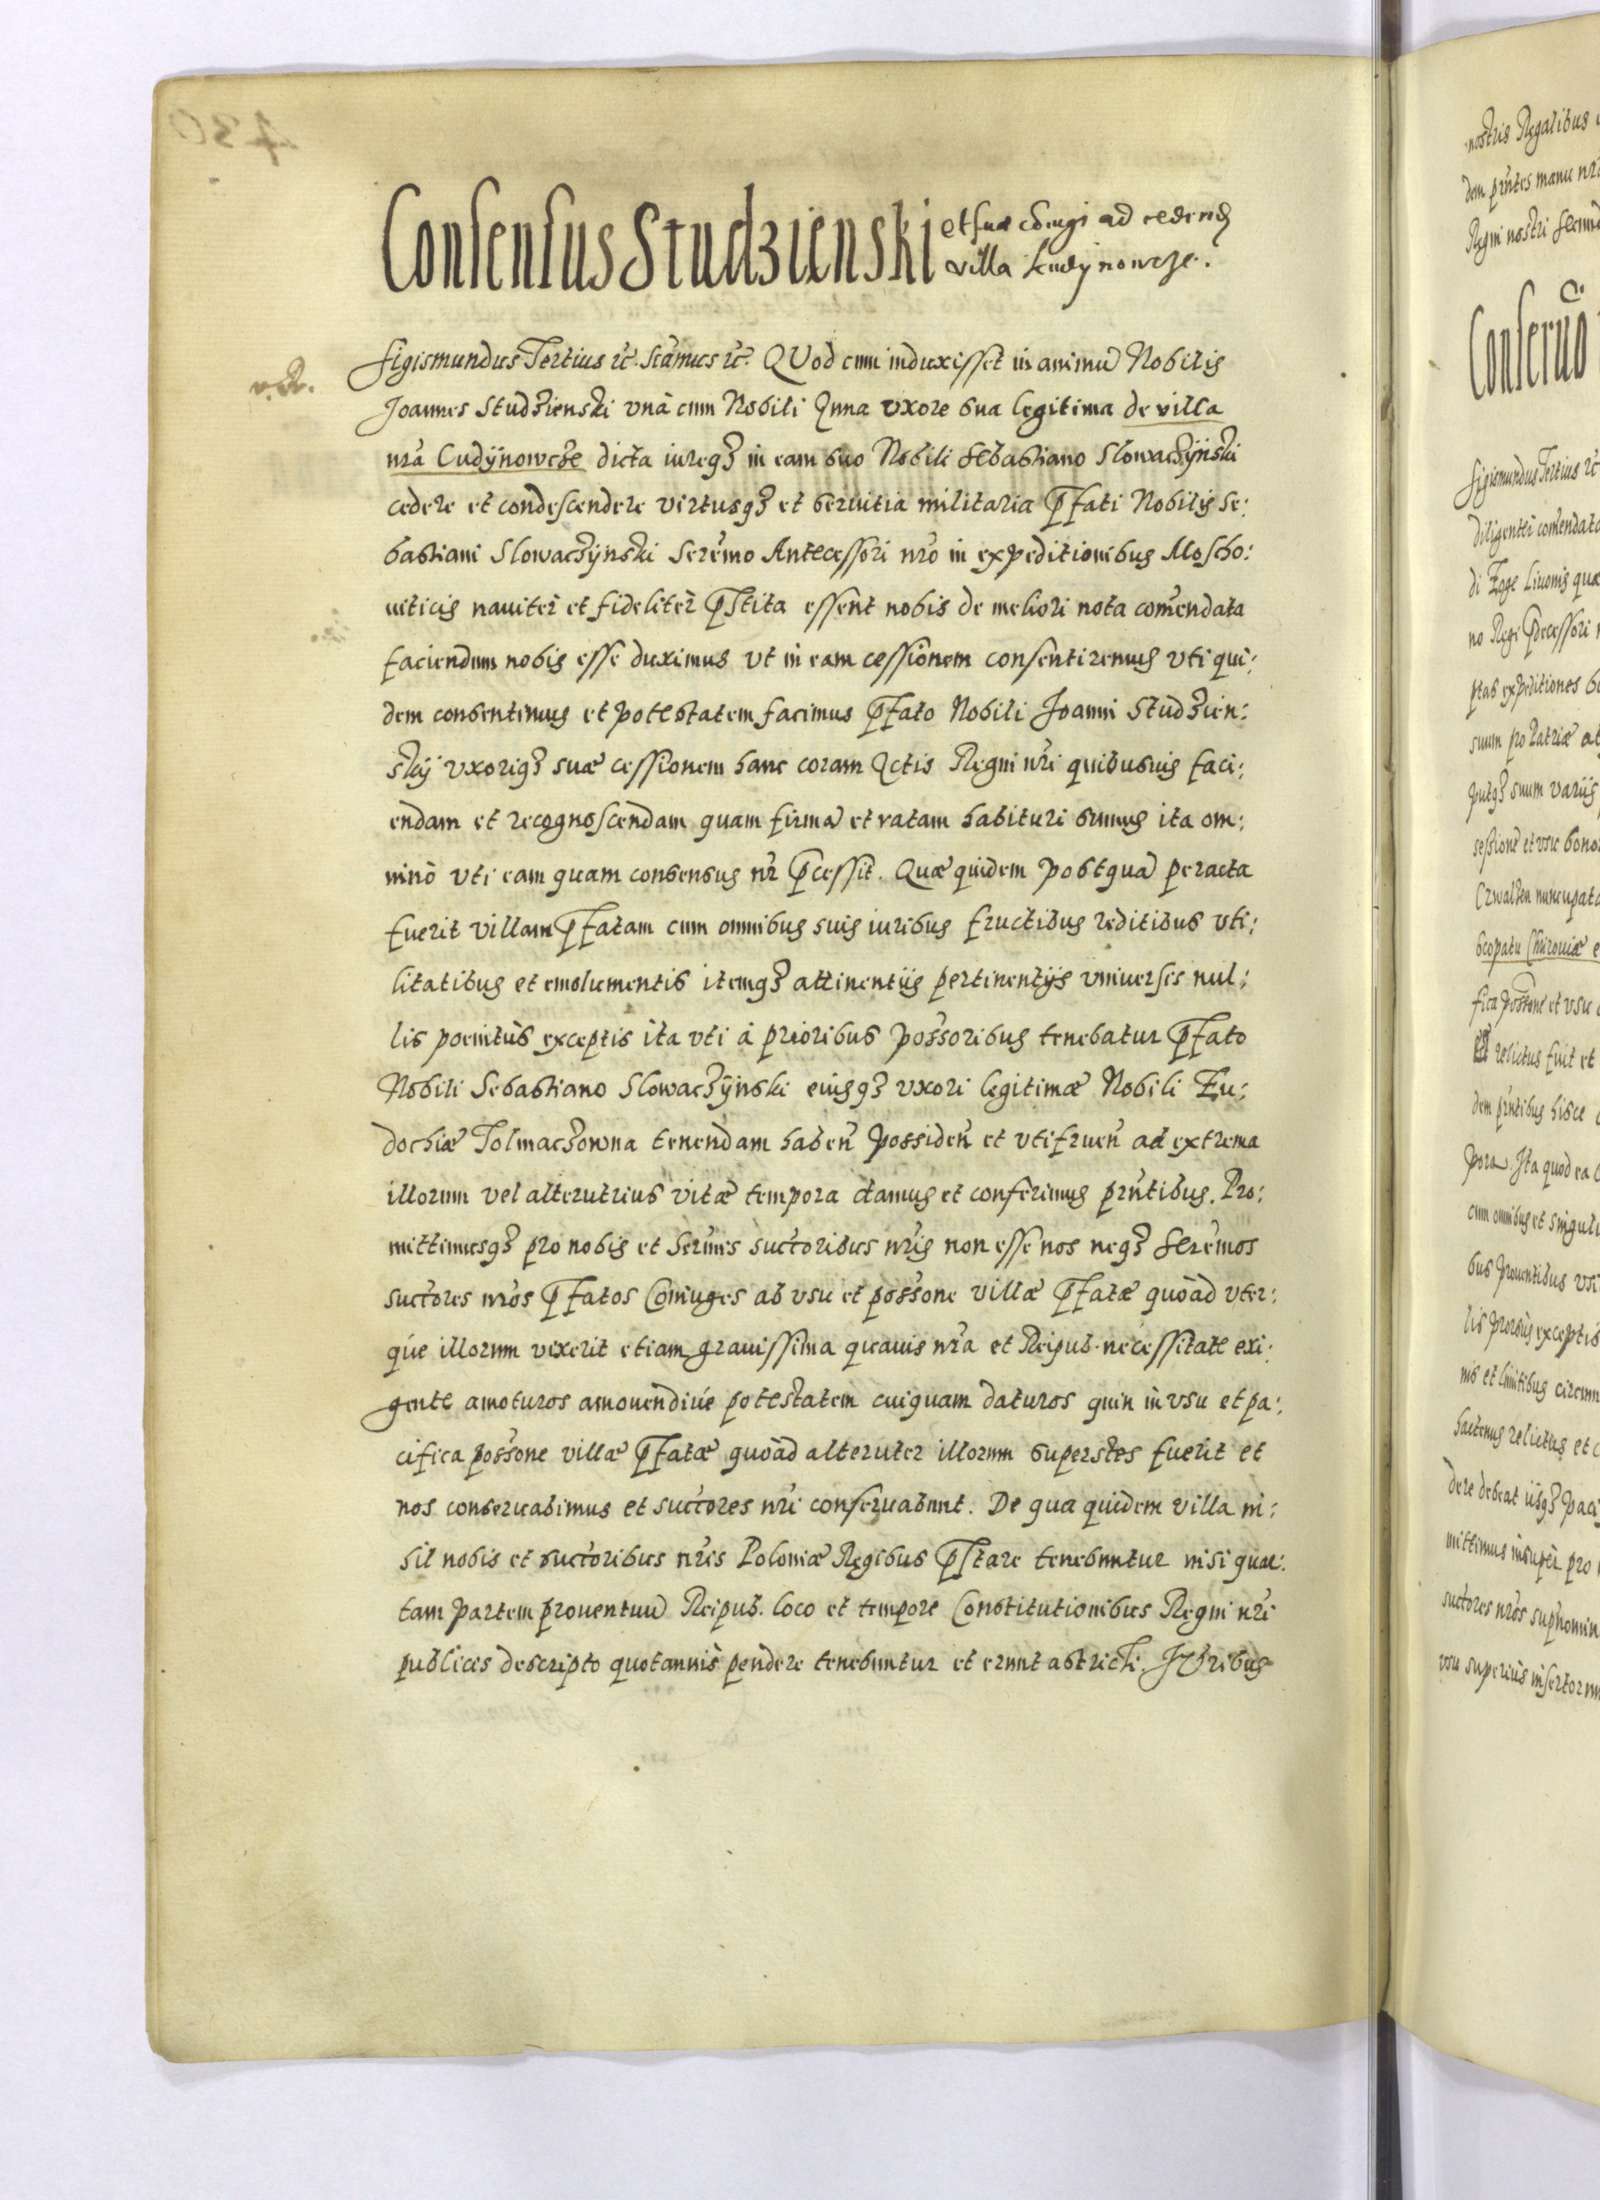 Consensus Studzienski et suæ cōiugi ad cedend
villa Kudynowcze.
Sigismundus Tertius rc̄. Scāmus rc̄. QUod cum induxisset in animū Nobilis
Joannes Studzienski vnà cum Nobili Anna vxore sua legitima de villa
nrā Cudÿnowcze dicta iureqз in eam suo Nobili Sebastiano Slowaczÿnski
cedere et condescendere virtusqз et seruitia militaria p̄fati Nobilis Se:
bastiani Slowaczÿnski Serēmo Antecessori nrō in expeditionibus Moscho:
uiticis nauiter et fideliter p̄stita essent nobis de meliori nota com̄endata
faciendum nobis esse duximus vt in eam cessionem consentiremus vti qui:
dem consentimus et potestatem facimus p̄fato Nobili Joanni Studzien:
skÿ vxoriqз suæ cessionem hanc coram Actis Regni nr̄i quibusuis faci:
endam et recognoscendam quam firmā et ratam habituri sumus ita om:
ninò vti eam quam consensus nr̄ p̄cessit. Quæ quidem postquā peracta
fuerit villam p̄fatam cum omnibus suis iuribus fructibus reditibus vti:
litatibus et emolumentis itemqз attinentijs pertinentijs vniuersis nul:
lis poenitùs exceptis ita vti à prioribus poss̄oribus tenebatur p̄fato
Nobili Sebastiano Slowaczÿnski eiusqз vxori legitimæ Nobili Eu:
dochiæ Tolmaczowna tenendam haben̄ possiden̄ et vtifruen̄ ad extrema
illorum vel alterutrius vitæ tempora damus et conferimus prn̄tibus. Pro:
mittimusqз pro nobis et Serm̄is succ̄toribus nrīs non esse nos neqз Serēmos
succ̄tores nrōs p̄fatos Coniuges ab vsu et poss̄one villæ p̄fatæ quòad vter:
que illorum vixerit etiam grauissima quauis nrā et Reipub. necessitate exi:
gente amoturos amouendiue potestatem cuiquam daturos quin in vsu et pa:
cifica poss̄one villæ p̄fatæ quòad alteruter illorum superstes fuerit et
nos conseruabimus et succ̄tores nrī conseruabunt. De qua quidem villa ni:
hil nobis et succ̄toribus nrīs Poloniæ Regibus p̄stare tenebuntur nisi quar:
tam partem prouentuū Reipub. loco et tempore Constitutionibus Regni nrī
publicis descripto quotannis pendere tenebuntur et erunt astricti. JUribus
nostris Regalibus
dem prn̄tes manu nrā
Regni nostri
Conseruō
Sigismundus Tertius rc̄
diligenter com̄endata
no Regi p̄decessori
ptas expeditiones
suum pro Patriæ
putqз suum varijs
nuncupata
scopatu
fica poss̄one et vsu
relictus fuit et
dem prn̄tibus hisce
pora. Ita quod ea
cum omnibus et singulis
bus prouentibus
lis prorsùs exceptis
nis et limitibus circum
hactenus relictus et
dere debeat ijsqз
mittimus insuper pro
succ̄tores nrōs
vsu superiùs insertorum